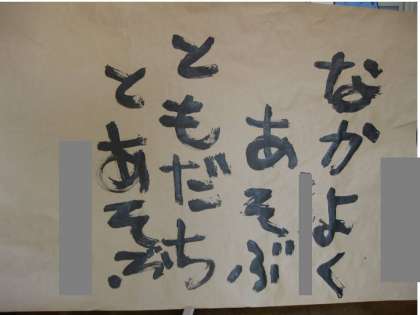 なかよく
あそぶ
ともだち
とあそぶ